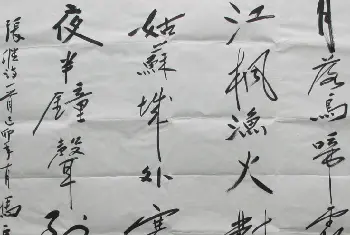 月落烏啼霜
江楓漁火對
姑蘇城外寒
夜半鐘聲到
張繼詩一首己卯年